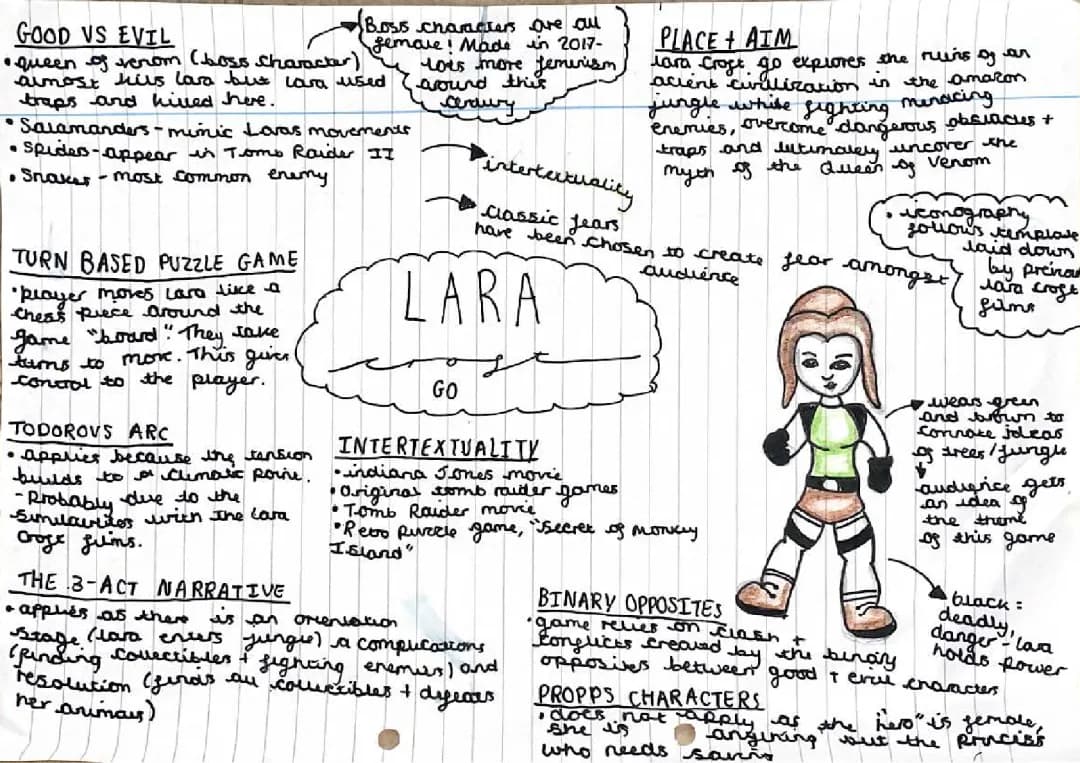 GOOD VS EVIL
• queen of venom (boss character)
almost kills lara but lara used
traps and killed here.
• Salamanders - mimic Laras movements
• Spides - appear in Tomb Raider II
• Snakes - most common enemy
Boss characters are all
female! Made in 2017-
lots more feminism
around this
century
intertextuality
classic fears
have been chosen to create fear amongst
audience
PLACE + AIM
lara Croft go explores the ruins of an
acient civilization in the amazon
jungle while fighting menacing
enemies, overcome dangerous obstacles +
traps and lutimately uncover the
myth of the Queen of Venom
• iconography
follows template
laid down
by
lara croft
films
TURN BASED PUZZLE GAME
• player moves Lara like a
chess piece around the
game "board". They take
turns to move. This gives
control to the player.
LARA
croft
GO
TODOROVS ARC
• applies because the tension
builds to a climatic point.
- Probably due to the
similarities with the Lara
Croft films.
INTERTEXTUALITY
• indiana Jones movie
• original tomb raider games
• Tomb Raider movie
• Retro puzzle game, "Secret of Monkey
Island"
wears green
and brown to
connote ideas
of trees/jungle
audience gets
an idea of
the theme
of this game
black:
deadly,
danger - lara
holds power
THE 3-ACT NARRATIVE
• applies as there is an orientation
stage (lara enters jungle) a complications
(finding collectibles + fighting enemies) and
resolution (finds all collectibles + defeats
her animals)
BINARY OPPOSITES
• game relies on clash +
conflicts created by the binary
opposites between good + evil characters
PROPPS CHARACTERS
• does not apply as the "hero" is female,
she is anything but the princess
who needs saving